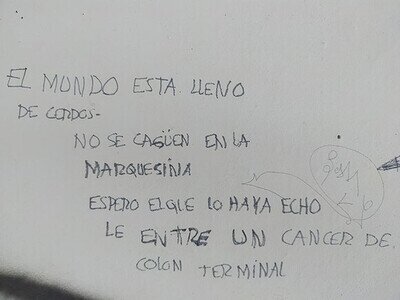 EL MUNDO ESTA LLENO
DE CERDOS-
NO SE CAGÜEN EN LA
MARQUESINA
ESPERO EL QUE LO HAYA ECHO
LE ENTRE UN CANCER DE
COLON TERMINAL